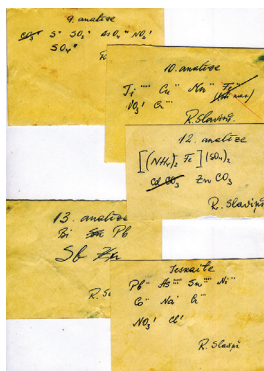 9. analize
CO₃" S" SO₃" NO₂'
SO₄"
R
10. analize
Ti'''' Cu" Mn" Fe
NO₃' Cl'
R. Slaviņš
12. analize
[(NH₄)₂ Fe](SO₄)₂
Cd CO₃ Zn CO₃
R. Slaviņš
13. analize
Bi Pb
Sb
R. S
Ieskaite
Pb" As''' Sn'''' Ni"
Co" Na'
NO₃' Cl'
R. Slaviņš